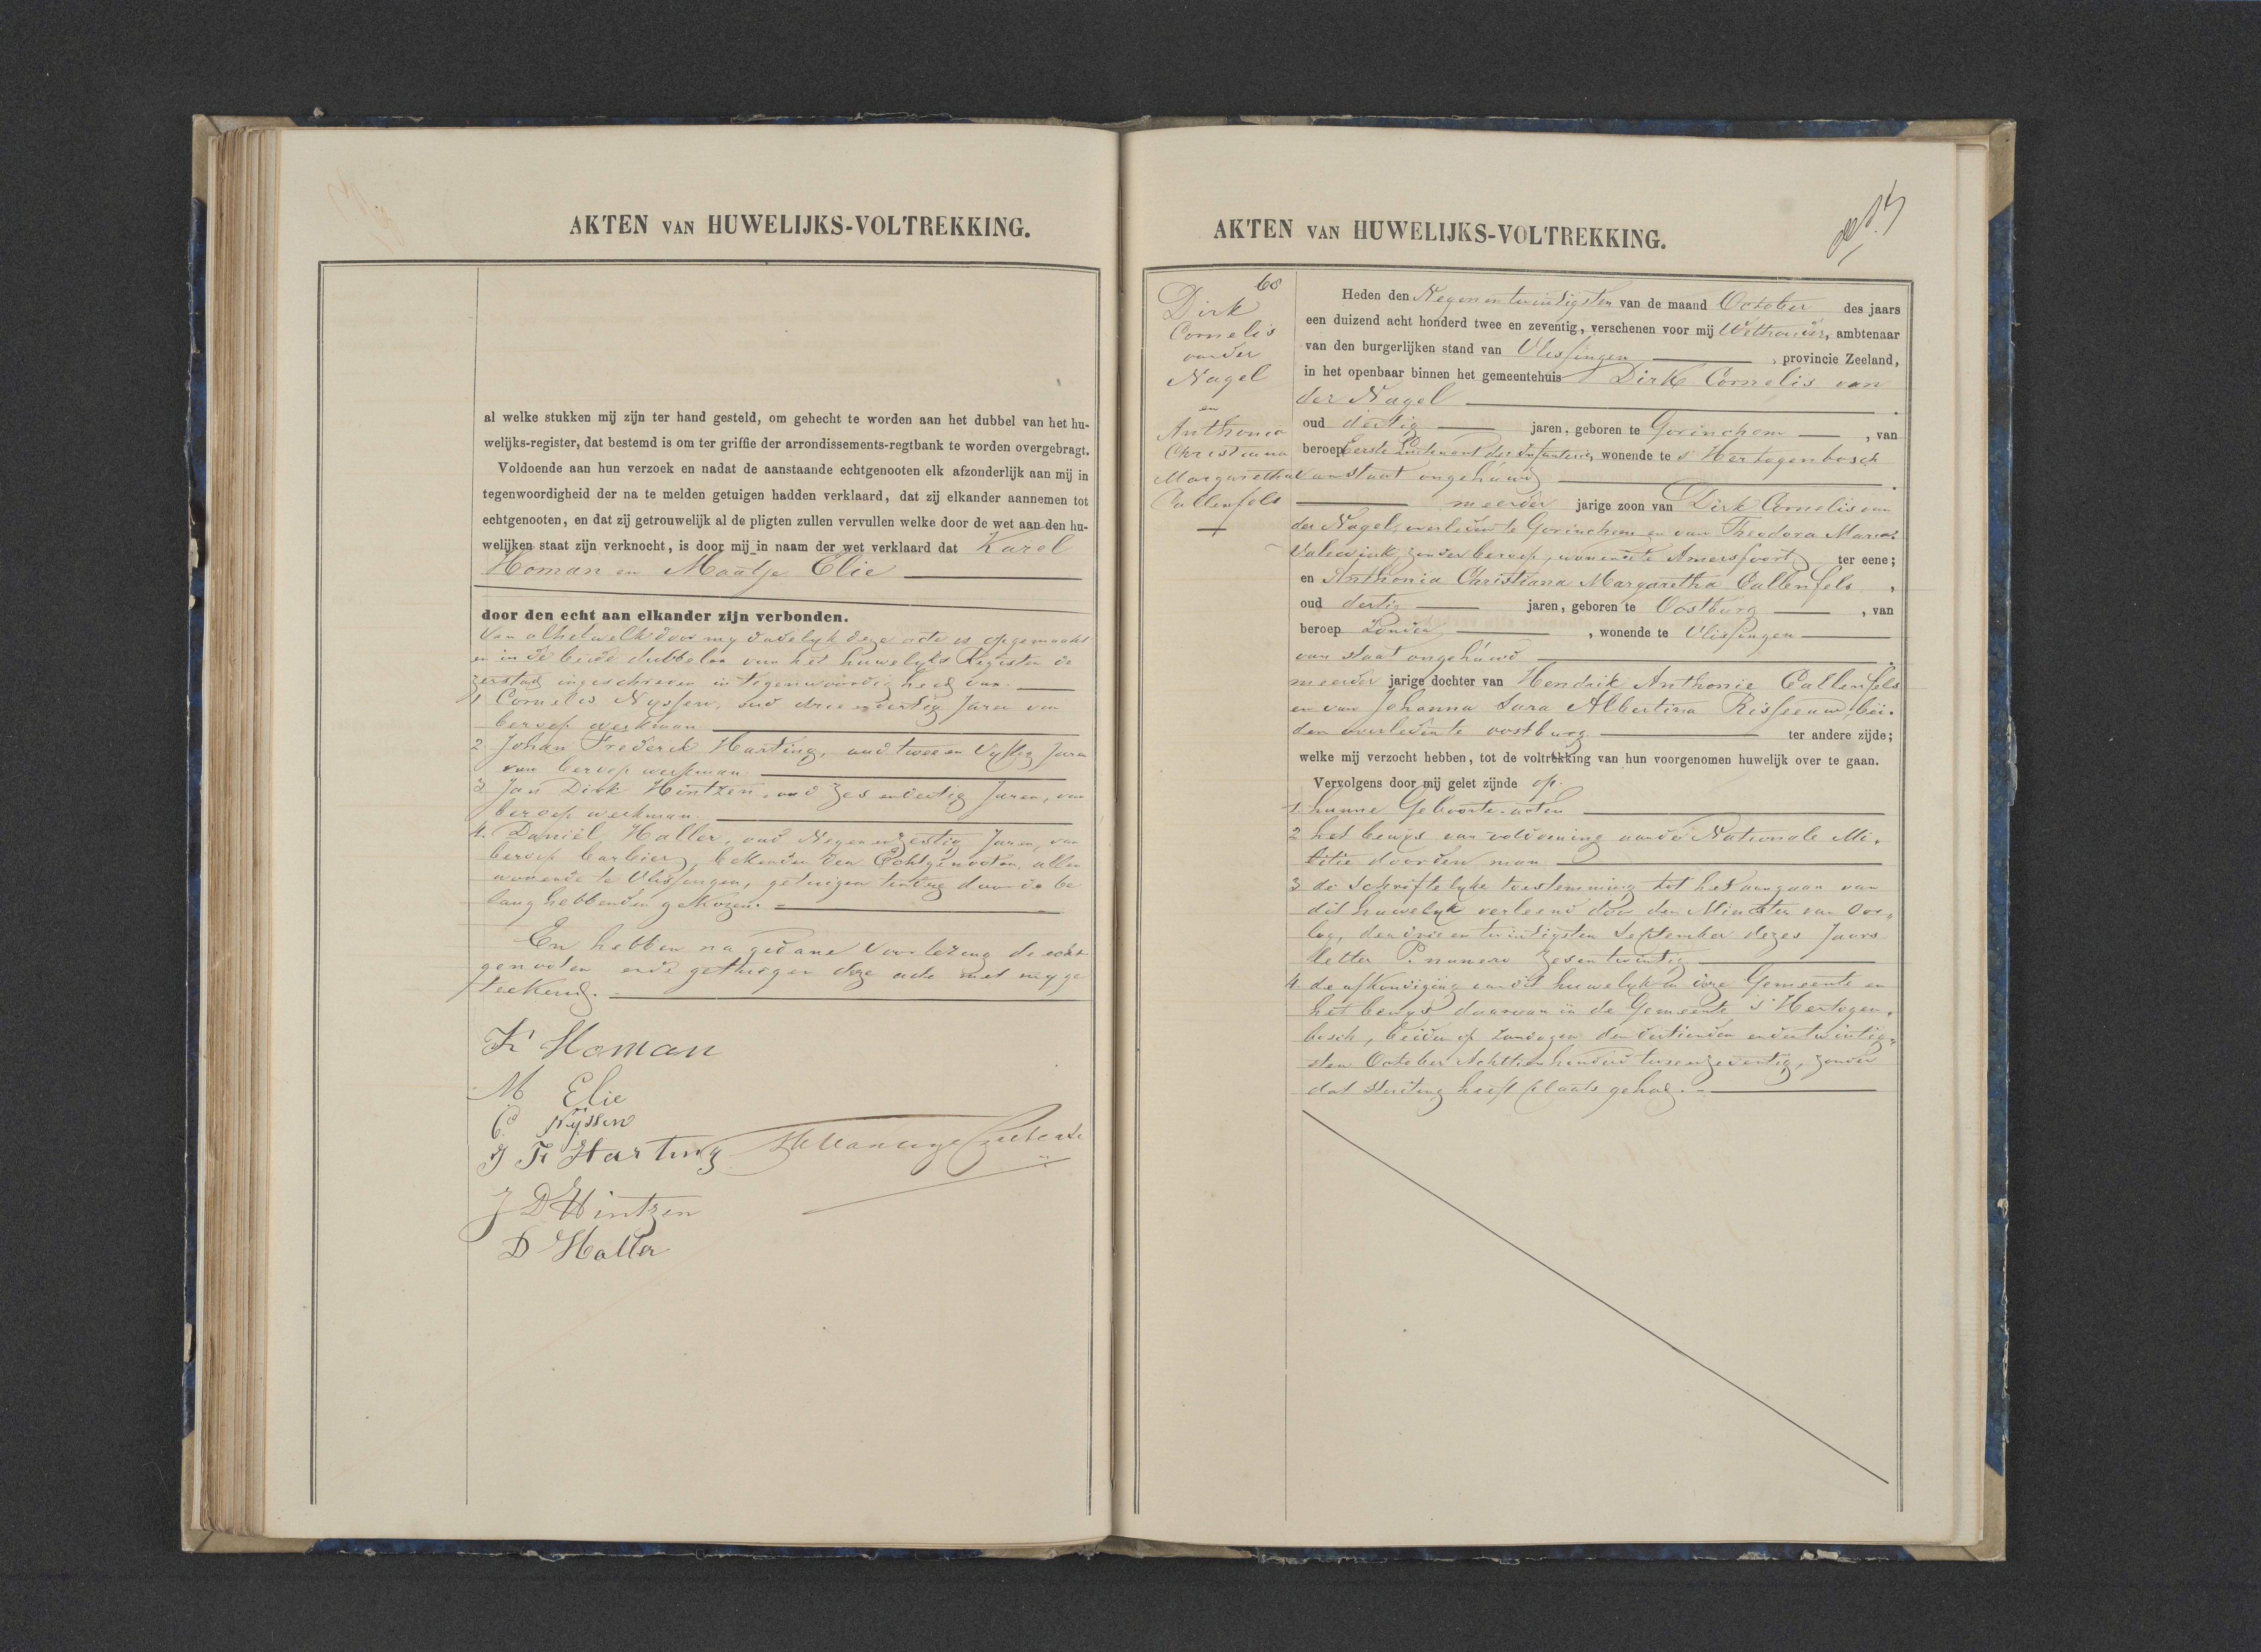 AKTEN VAN HUWELIJKS-VOLTREKKING.
al welke stukken mij zijn ter hand gesteld, om gehecht te worden aan het dubbel van het hu-
welijks-register, dat bestemd is om ter griffie der arrondissements-regtbank te worden overgebragt.
Voldoende aan hun verzoek en nadat de aanstaande echtgenooten elk afzonderlijk aan mij in
tegenwoordigheid der na te melden getuigen hadden verklaard, dat zij elkander aannemen tot
echtgenooten, en dat zij getrouwelijk al de pligten zullen vervullen welke door de wet aan den hu-
welijken staat zijn verknocht, is door mij in naam der wet verklaard dat Karel
Homan en Maatje Elie
door den echt aan elkander zijn verbonden.
Van al hetwelk door mij dadelyk deze acte is opgemaakt
en in de beide dubbelen van het huwelyks Register de
zerstad ingeschreven in tegenwoordigheid van
1 Cornelis Nyssen, oud drie en dertig Jaren van
beroep werkman
2 Johan Frederik Harting, oud twee en Vyftig Jaren
van beroep werkman
3 Jan Dirk Hintzen, oud zes en dertig Jaren, van
beroep werkman
4. Daniël Haller, oud Negen en zestig Jaren, van
beroep barbier, bekenden der Echtgenooten, allen
wonende te Vlissingen, getuigen ten deze door de be
langhebbenden gekozen.
En hebben na gedane Voorlezing de echt
genooten en de getuigen deze acte met my ge
teekend.
K Homan
M Elie
C Nÿssen
J F Harting
J D Hintzen
D Haller
AKTEN VAN HUWELIJKS-VOLTREKKING.
68
Dirk
Cornelis
van der
Nagel
en
Anthonia
Christiana
Margaretha
Callenfels
Heden den Negen en twintigsten van de maand October des jaars
een duizend acht honderd twee en zeventig, verschenen voor mij Wethouder, ambtenaar
van den burgerlijken stand van Vlissingen, provincie Zeeland,
in het openbaar binnen het gemeentehuis Dirk Cornelis van
der Nagel
oud dertig jaren, geboren te Gorinchem, van
beroep Eerste Luitenant der Infanterie, wonende te s' Hertogenbosch
van staat ongehuwd
meerder jarige zoon van Dirk Cornelis van
der Nagel, overleden te Gorinchem en van Theodora Maria
zonder beroep, wonende te Amersfoort ter eene;
en Anthonia Christiana Margaretha Callenfels,
oud dertig jaren, geboren te Oostburg, van
beroep Zonder, wonende te Vlissingen
van staat ongehuwd
meerder jarige dochter van Hendrik Anthonie Callenfels
en van Johanna Sara Albertina Risseeuw, bei-
den overleden te oostburg ter andere zijde;
welke mij verzocht hebben, tot de voltrekking van hun voorgenomen huwelijk over te gaan.
Vervolgens door mij gelet zijnde op.
1. hunne Geboorte-acten
2 het bewys van voldoening aan de Nationale Mi-
litie door den man
3 de schriftelyke toestemming tot het aangaan van
dit huwelyk verleend door den Minister van Oor-
log, den drie en twintigsten September dezes Jaars
letter P. numero zes en twintig
4. de afkondiging van dit huwelyk in deze Gemeente en
het bewys daarvan in de Gemeente 's Hertogen-
bosch, beiden op zondagen den dertienden en den twintig-
sten October Achttien honderd twee en zeventig, zonder
dat stuiting heeft plaats gehad.